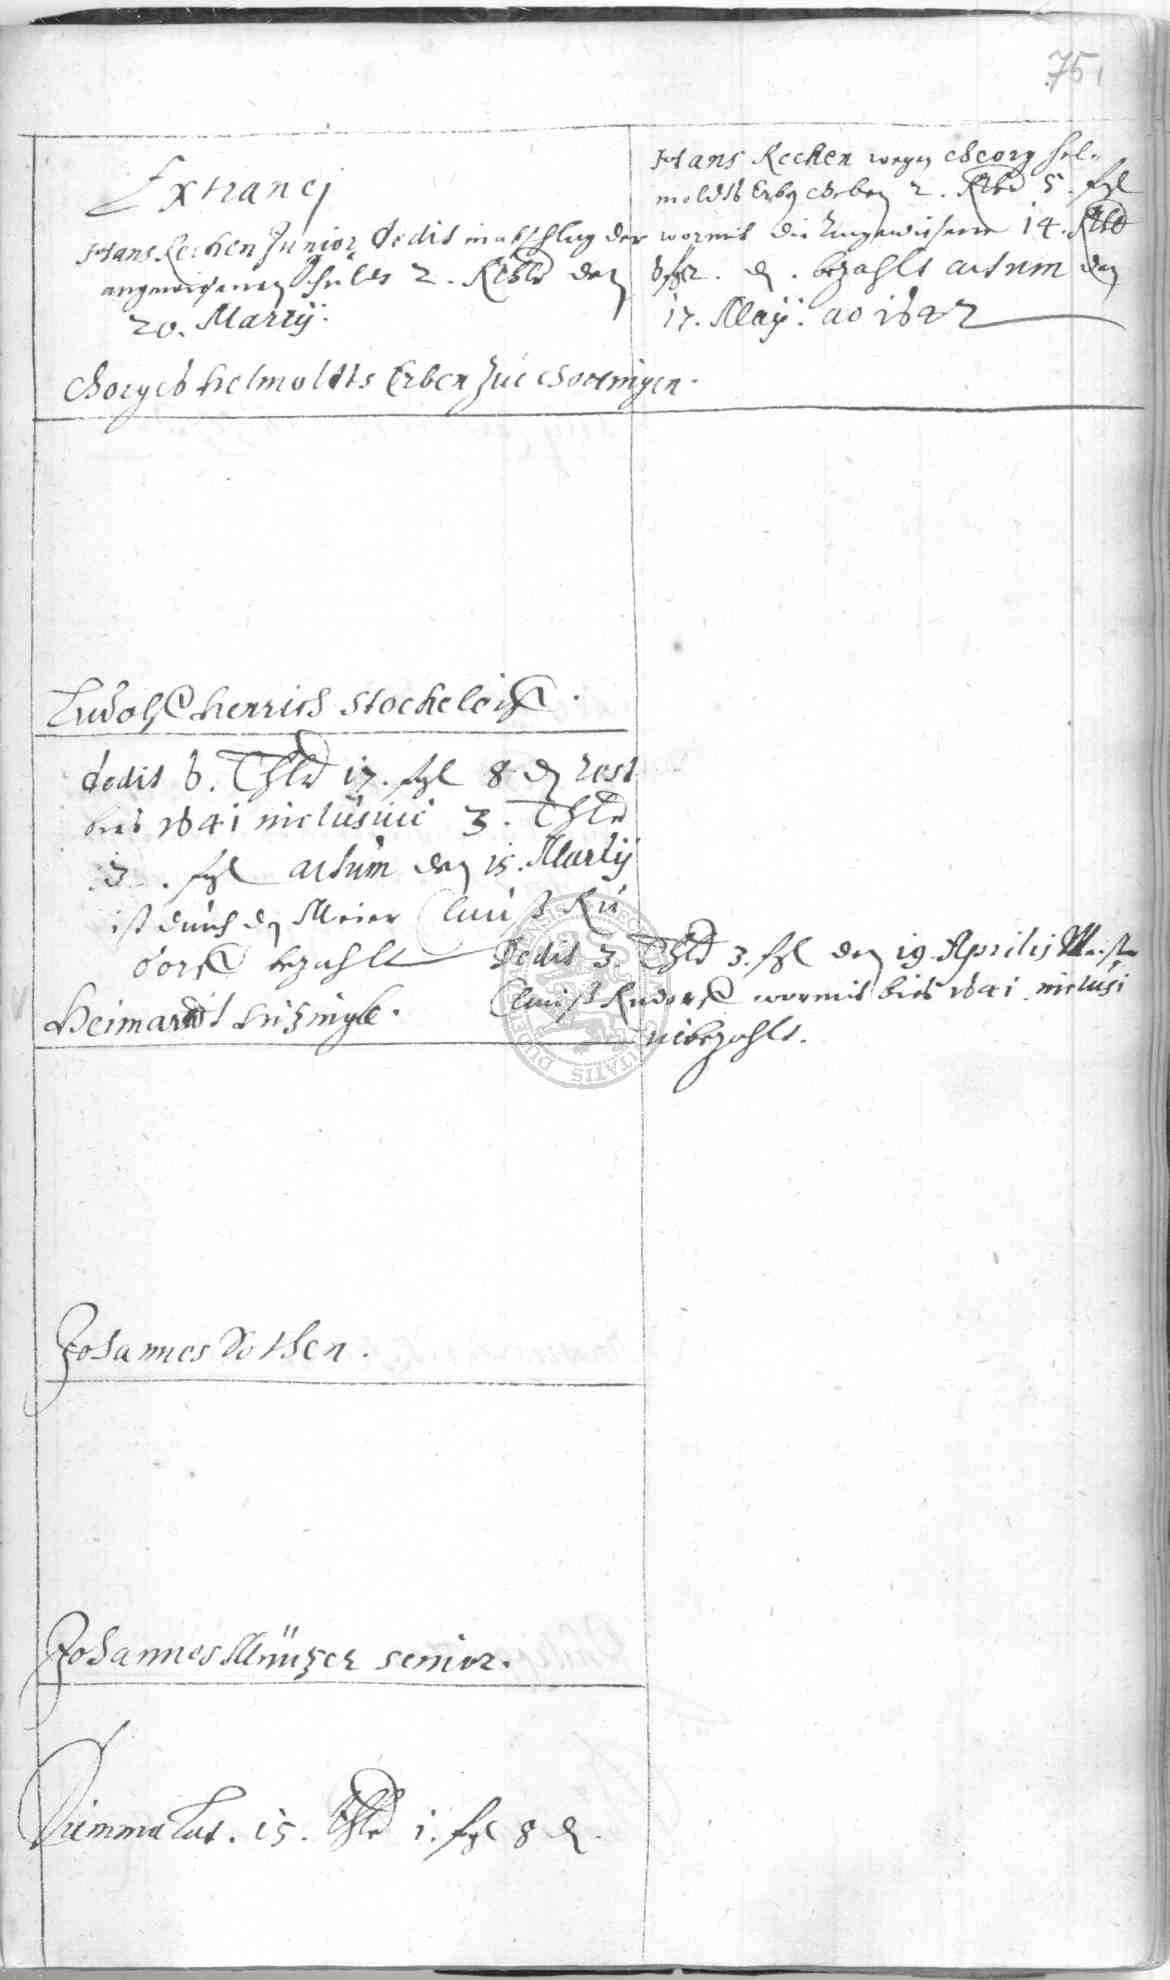 75
Extranej
Hans Rechen Junior dedit in abschlag der
angewiesenen Schuldt 2. Rthlr den
20. Martij.
Hans Rechen wegen Georg Hel-
moldts Erben geben 2. Rthlr 5. ßl
wormit die angewiesene 14. Rthlr
bezahlt actum den
17. Maij. ao 1642
Gorges Helmoldts Erben zue Gottingen.
Ludolff Henrich Stockeleiff.
dedit 6. Thlr 17. ßl 8 d rest
bies 1641 inclusiue 3. Thlr
3. ßl actum den 15. Martij
ist durch den Meier Clauß Ru
dorff bezahlt
Dedit 3 Thlr 3. ßl den 19 Aprilis
Clauß Rudorff wormit bies 1641 inclusi
ue bezahlt.
Heimardt
Johannes Dothen.
Johannes Müntzer senior.
Summa Lat. 15. Thlr 1. ßl 8 d.